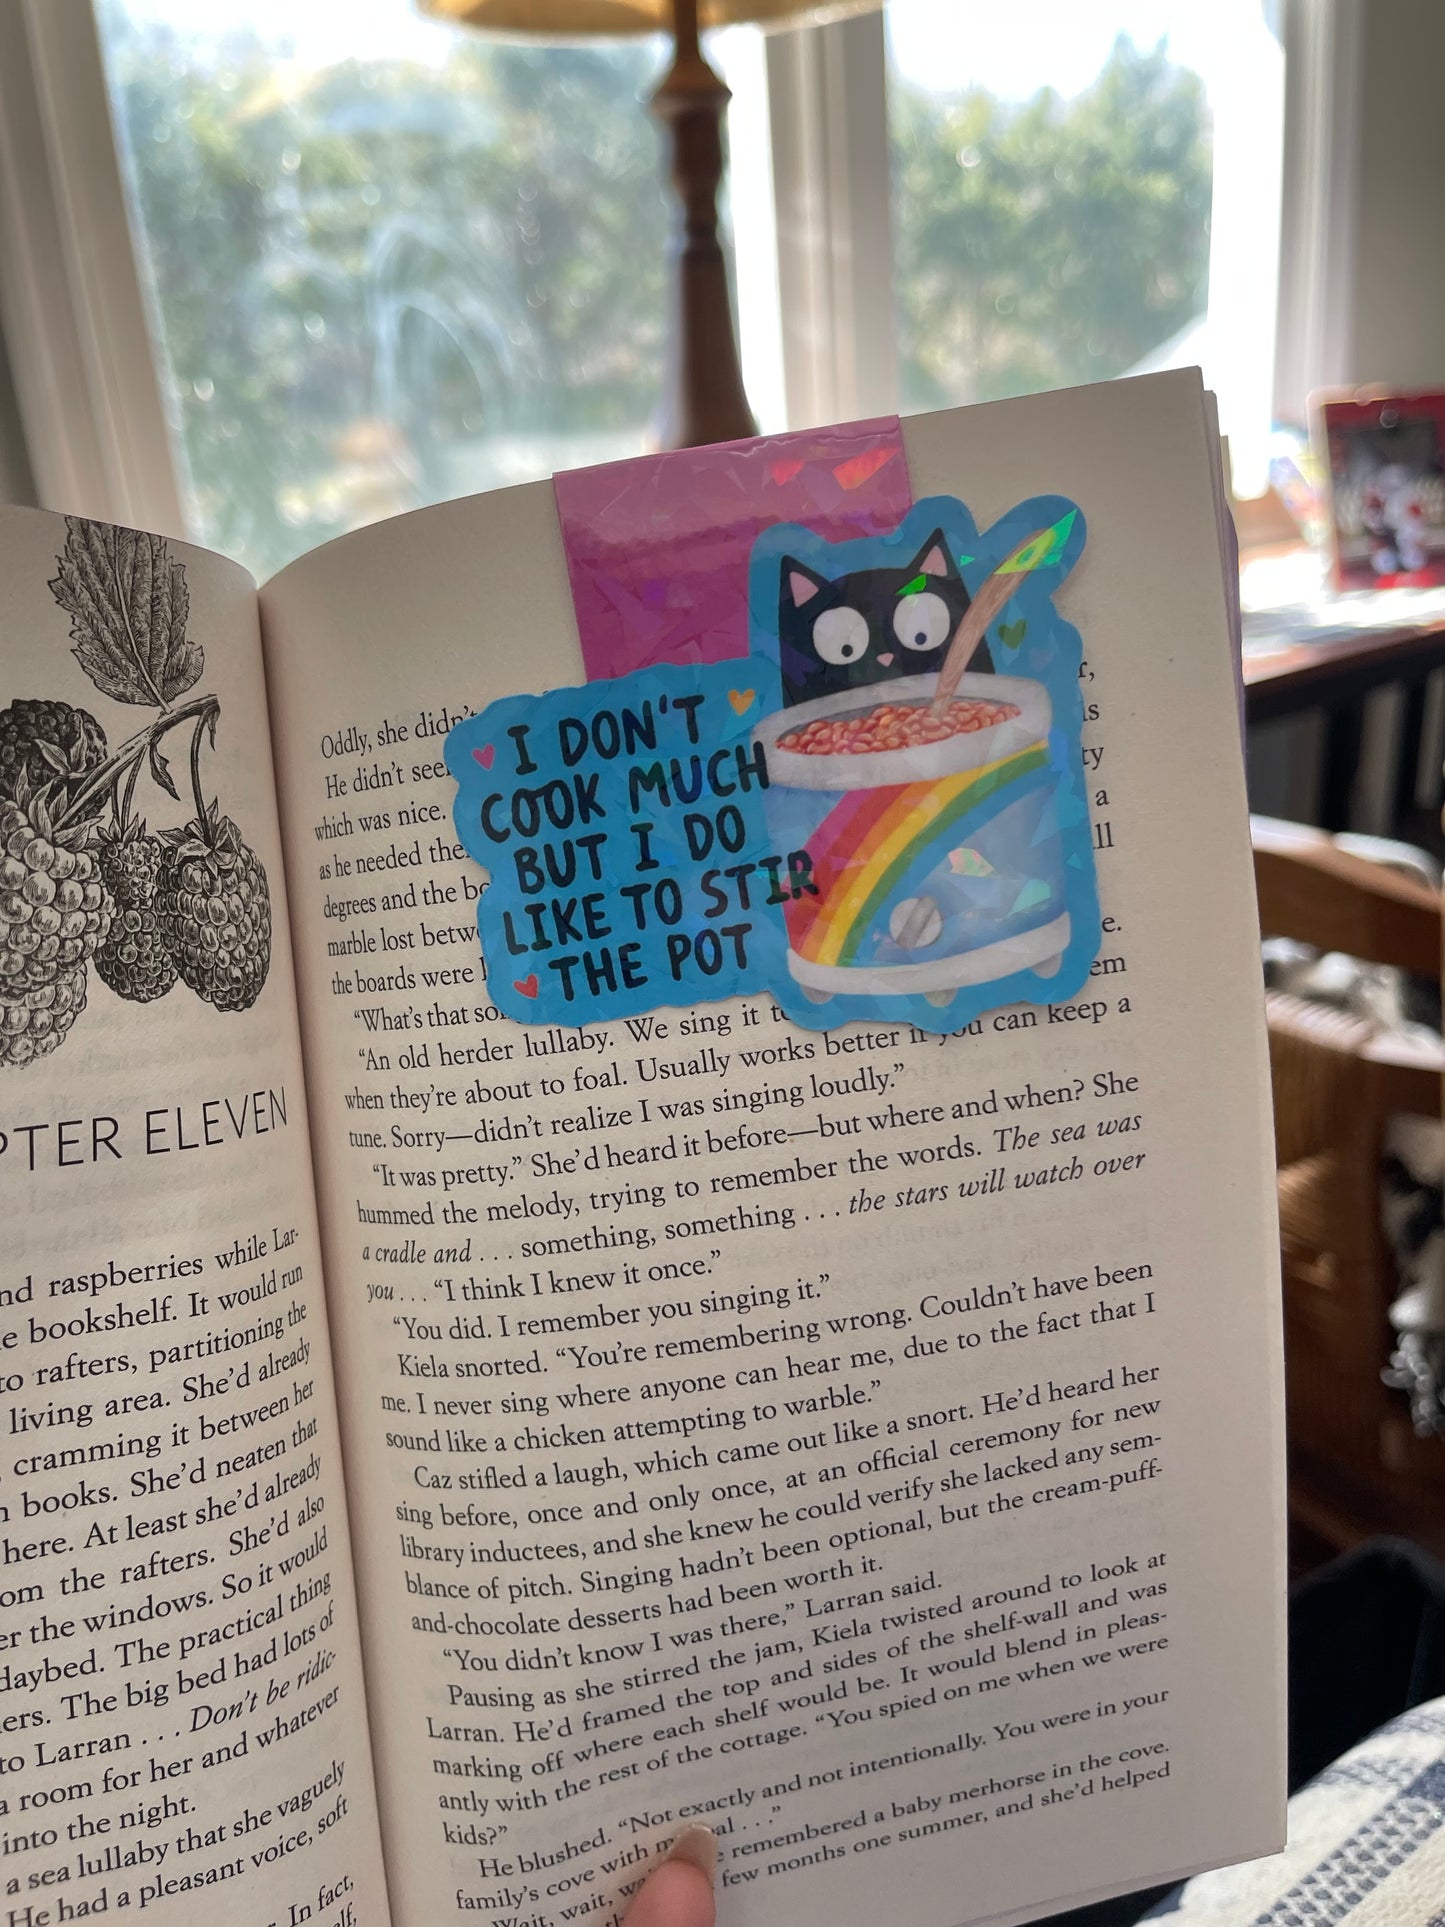 PTER ELEVEN
nd raspberries while Lar-
e bookshelf. It would run
to rafters, partitioning the
living area. She'd already
, cramming it between her
n books. She'd neaten that
here. At least she'd already
om the rafters. She'd also
er the windows. So it would
daybed. The practical thing
ers. The big bed had lots of
to Larran . . . Don't be ridic-
a room for her and whatever
into the night.
a sea lullaby that she vaguely
He had a pleasant voice, soft
In fact,
I DON'T
COOK MUCH
BUT I DO
LIKE TO STIR
THE POT
Oddly, she didn't
He didn't see
which was nice.
as he needed the
degrees and the bo
marble lost betw
the boards were
“What's that so
“An old herder lullaby. We sing it to
when they're about to foal. Usually works better if you can keep a
tune. Sorry—didn't realize I was singing loudly.”
“It was pretty.” She'd heard it before—but where and when? She
hummed the melody, trying to remember the words. The sea was
a cradle and . . . something, something . . . the stars will watch over
you . . . “I think I knew it once.”
“You did. I remember you singing it.”
Kiela snorted. “You're remembering wrong. Couldn't have been
me. I never sing where anyone can hear me, due to the fact that I
sound like a chicken attempting to warble.”
Caz stifled a laugh, which came out like a snort. He'd heard her
sing before, once and only once, at an official ceremony for new
library inductees, and she knew he could verify she lacked any sem-
blance of pitch. Singing hadn't been optional, but the cream-puff-
and-chocolate desserts had been worth it.
“You didn't know I was there,” Larran said.
Pausing as she stirred the jam, Kiela twisted around to look at
Larran. He'd framed the top and sides of the shelf-wall and was
marking off where each shelf would be. It would blend in pleas-
antly with the rest of the cottage. “You spied on me when we were
kids?”
He blushed. “Not exactly and not intentionally. You were in your
family's cove with m al . . .”
Wait, wait, remembered a baby merhorse in the cove.
few months one summer, and she'd helped